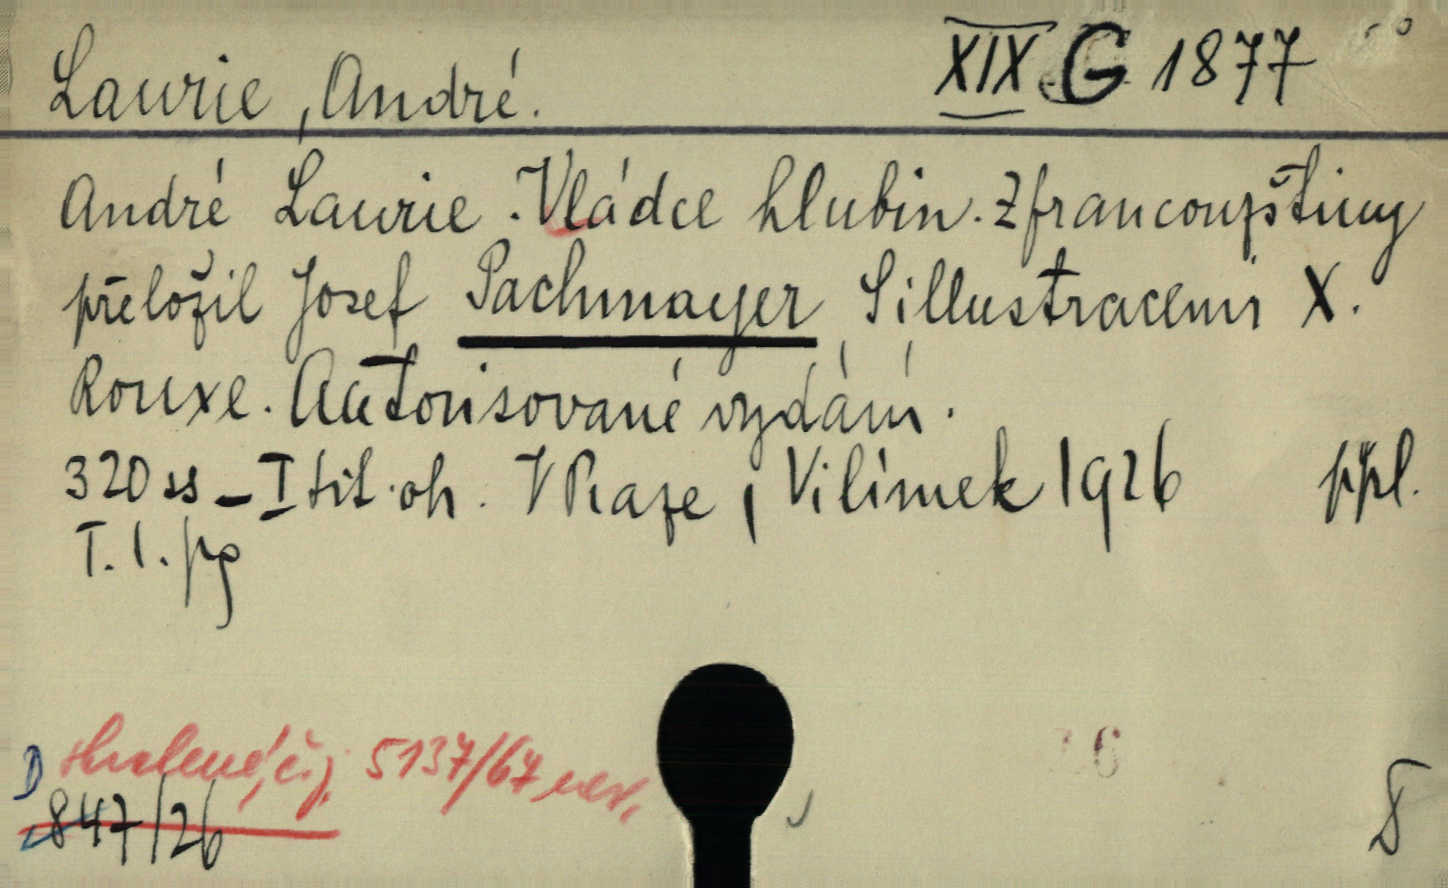 Laurie, André.
XIX G 1877
André Laurie. Vládce hlubin. Z francouzštiny
přeložil Josef Pachmayer S illustracemi X.
Rouxe. Autorisované vydání.
320 ss – I tit. ob. V Praze, Vilímek 1926 ppl.
T. l. pg
D škrtené, čj. 5137/67
847/26
8